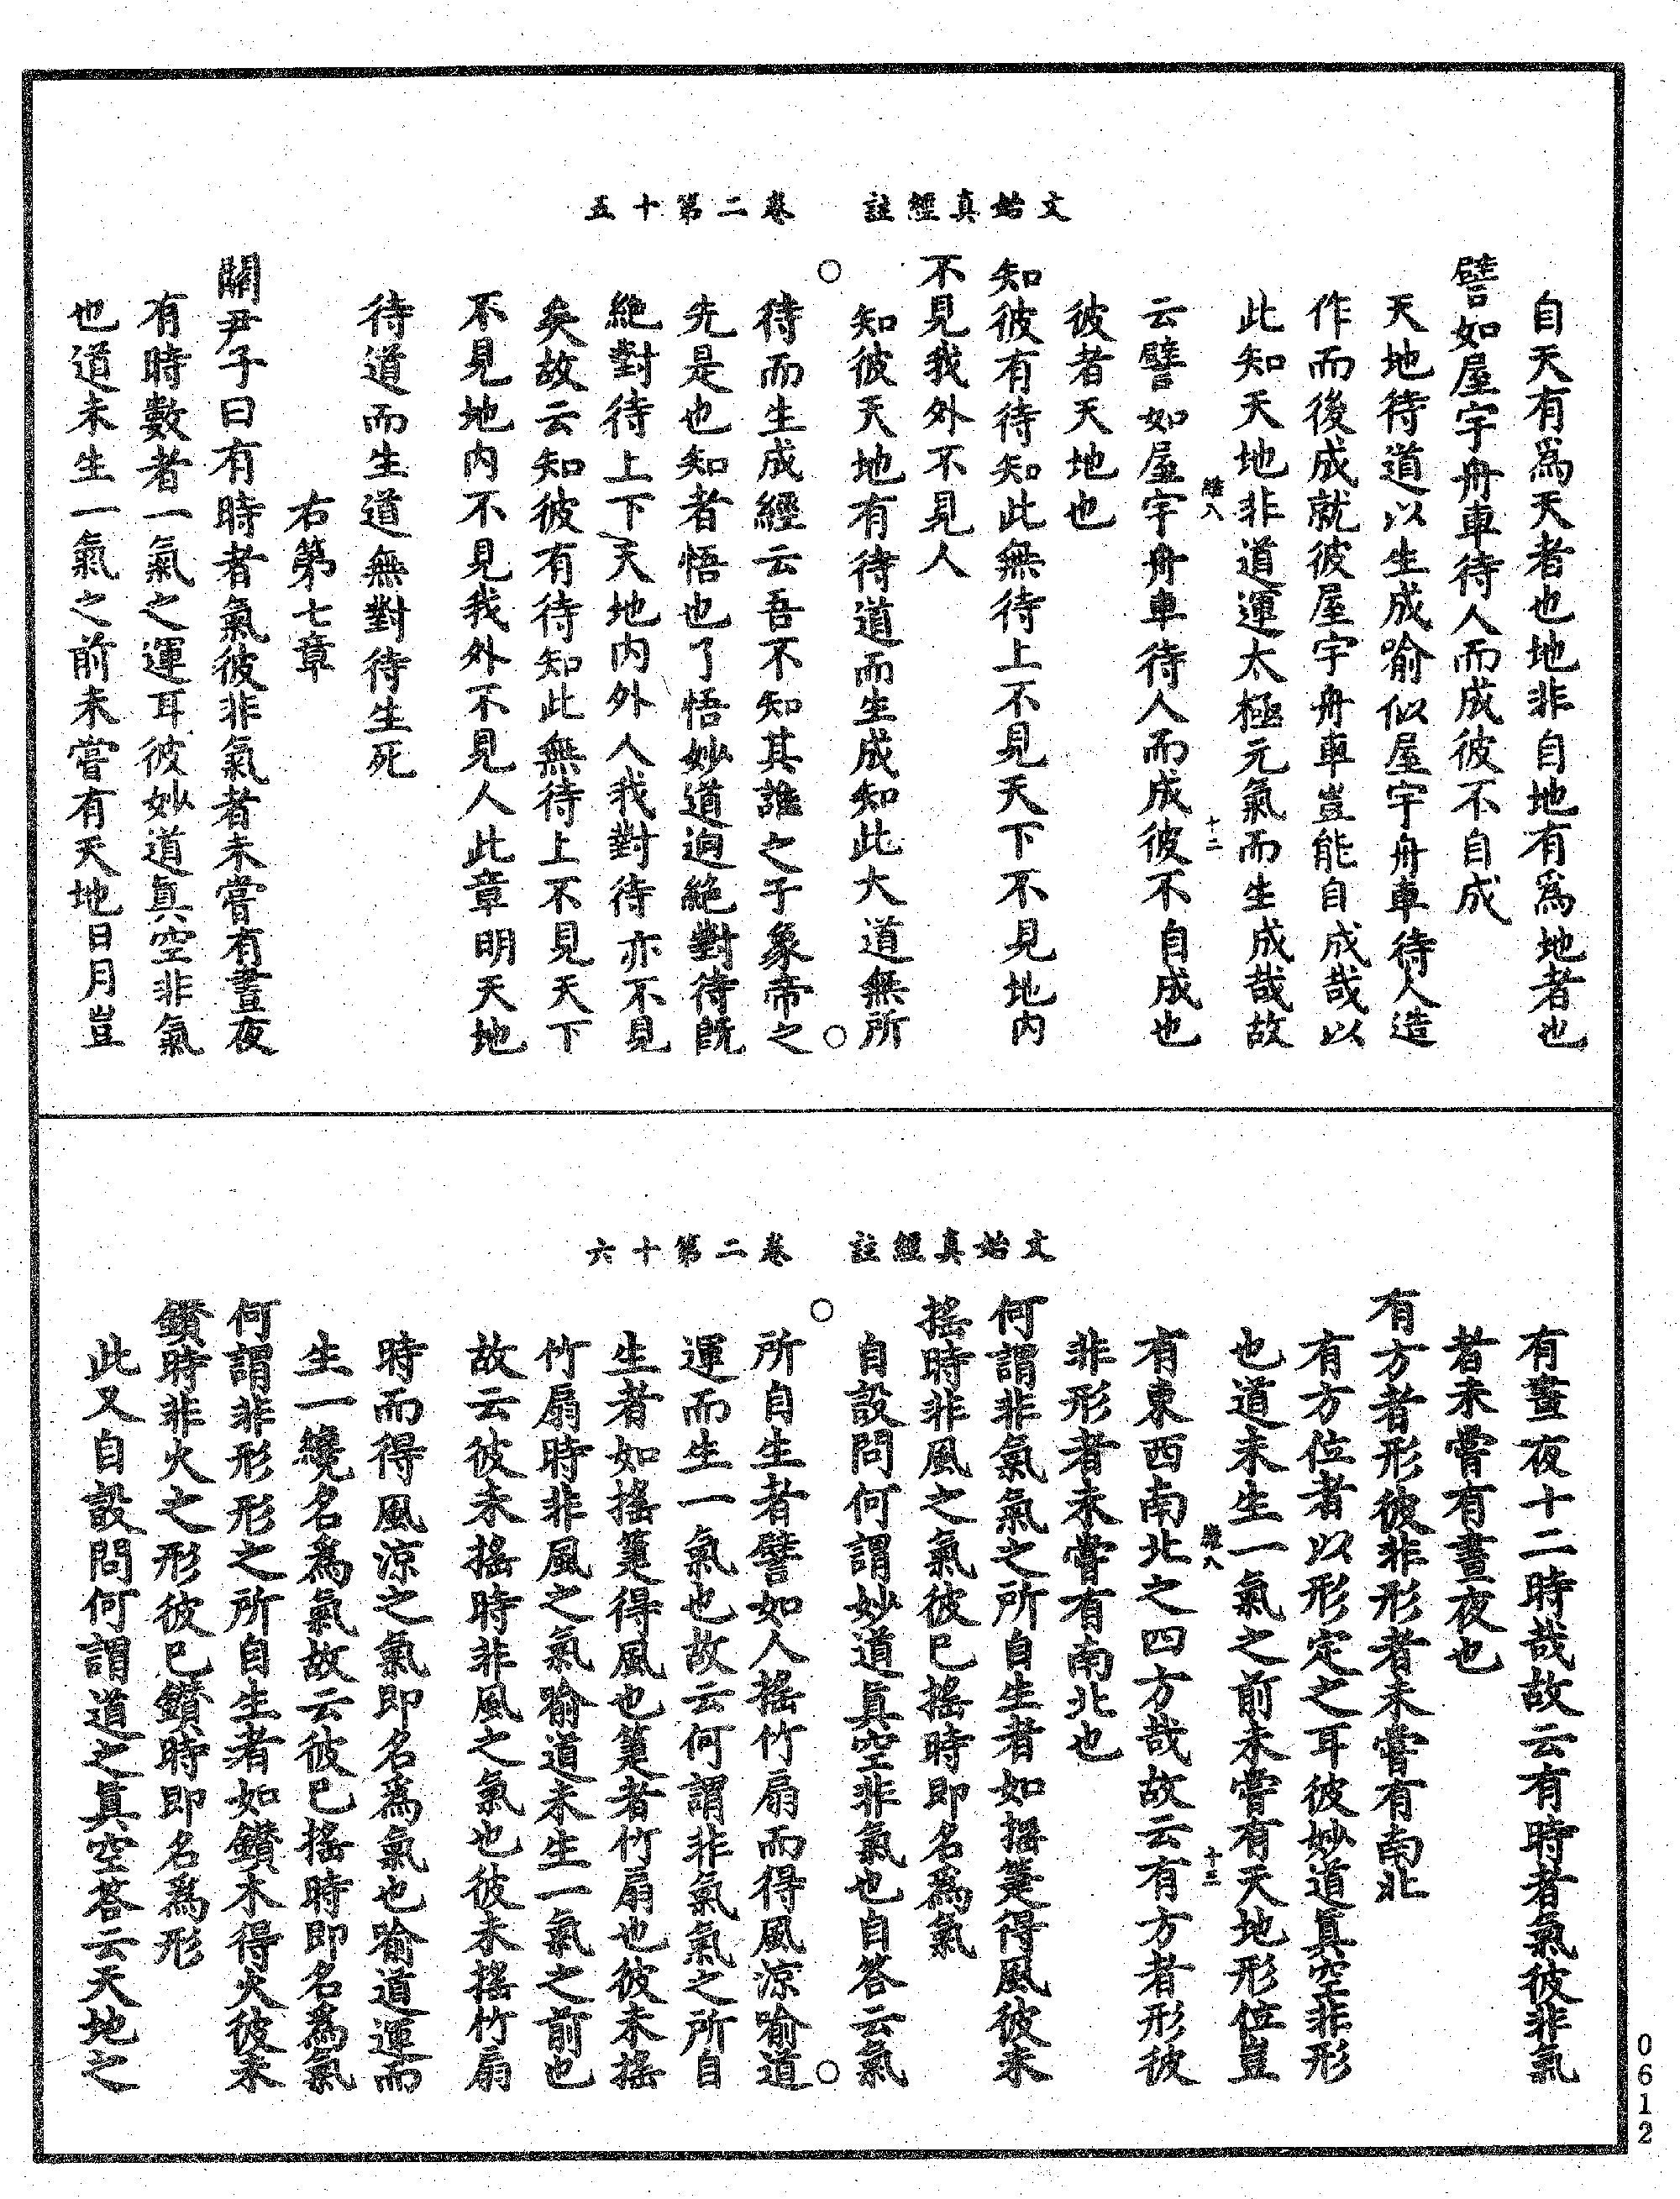 文始真經註　卷二第十五
自天有為天者也地非自地有為地者也
譬如屋宇舟車待人而成彼不自成
天地待道以生成喻似屋宇舟車待人造
作而後成就彼屋宇舟車豈能自成哉以
此知天地非道運太極元氣而生成哉故
云譬如屋宇舟車待人而成彼不自成也
彼者天地也
知彼有待知此無待上不見天下不見地內
不見我外不見人
知彼天地有待道而生成知此大道無所
待而生成經云吾不知其誰之子象帝之
先是也知者悟也了悟妙道迥絕對待既
絕對待上下天地內外人我對待亦不見
矣故云知彼有待知此無待上不見天下
不見地內不見我外不見人此章明天地
待道而生道無對待生死
右第七章
關尹子曰有時者氣彼非氣者未嘗有晝夜
有時數者一氣之運耳彼妙道真空非氣
也道未生一氣之前未嘗有天地日月豈
文始真經註　卷二第十六
有晝夜十二時哉故云有時者氣彼非氣
者未嘗有晝夜也
有方者形彼非形者未嘗有南北
有方位者以形定之耳彼妙道真空非形
也道未生一氣之前未嘗有天地形位豈
有東西南北之四方哉故云有方者形彼
非形者未嘗有南北也
何謂非氣氣之所自生者如搖箑得風彼未
搖時非風之氣彼已搖時即名為氣
自設問何謂妙道真空非氣也自答云氣
所自生者譬如人搖竹扇而得風涼喻道
運而生一氣也故云何謂非氣氣之所自
生者如搖箑得風也箑者竹扇也彼未搖
竹扇時非風之氣喻道未生一氣之前也
故云彼未搖時非風之氣也彼未搖竹扇
時而得風涼之氣即名為氣也喻道運而
生一纔名為氣故云彼已搖時即名為氣
何謂非形形之所自生者如鑽木得火彼未
鑽時非火之形彼已鑽時即名為形
此又自設問何謂道之真空答云天地之
0612